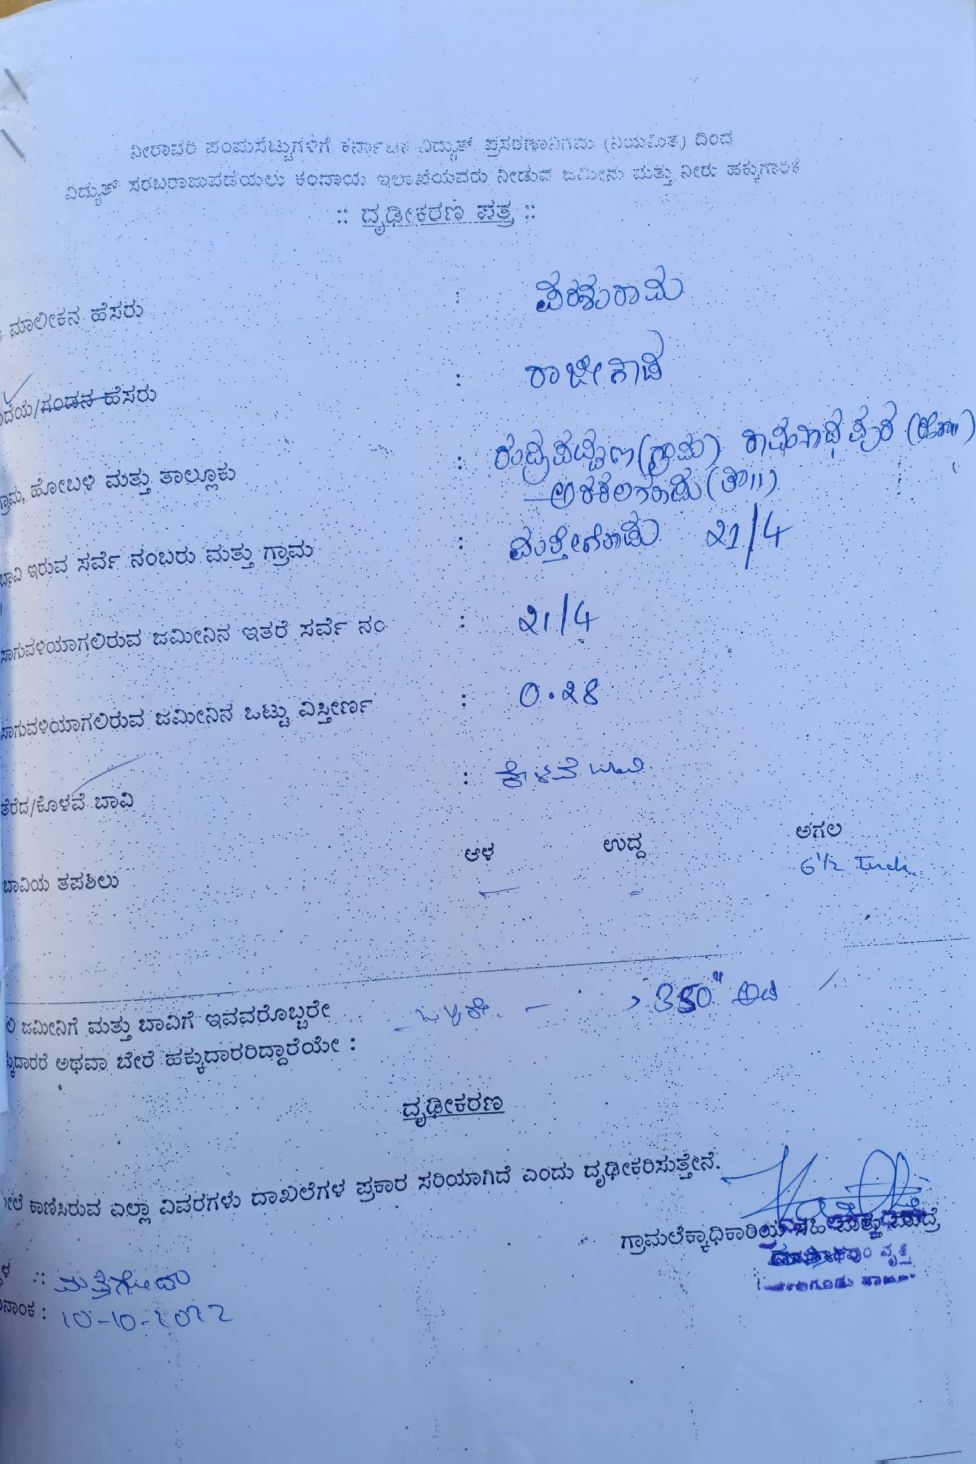 ನೀರಾವರಿ ಪಂಪುಸೆಟ್ಟುಗಳಿಗೆ ಕರ್ನಾಟಕ ವಿದ್ಯುತ್ ಪ್ರಸರಣಾನಿಗಮ (ನಿಯಮಿತ) ದಿಂದ
ವಿದ್ಯುತ್ ಸರಬರಾಜುಪಡೆಯಲು ಕಂದಾಯ ಇಲಾಖೆಯವರು ನೀಡುವ ಜಮೀನು ಮತ್ತು ನೀರು ಹಕ್ಕುಗಾರಿಕೆ
:: ದೃಢೀಕರಣ ಪತ್ರ ::
ಮಾಲೀಕನ ಹೆಸರು : ಪರಶುರಾಮ
/ಗಂಡನ ಹೆಸರು : ರಾಜೇಗೌಡ
ಹೋಬಳಿ ಮತ್ತು ತಾಲ್ಲೂಕು : ರುದ್ರಪಟ್ಟಣ (ಗ್ರಾಮ) ರಾಮನಾಥಪುರ (ಹೋ॥)
ಅರಕಲಗೂಡು (ತಾ॥)
ಬಾವಿ ಇರುವ ಸರ್ವೆ ನಂಬರು ಮತ್ತು ಗ್ರಾಮ : 21/4
ಸಾಗುವಳಿಯಾಗಲಿರುವ ಜಮೀನಿನ ಇತರೆ ಸರ್ವೆ ನಂ : 21/4
ಸಾಗುವಳಿಯಾಗಲಿರುವ ಜಮೀನಿನ ಒಟ್ಟು ವಿಸ್ತೀರ್ಣ : 0.28
ತೆರೆದ/ಕೊಳವೆ ಬಾವಿ : ಕೊಳವೆ ಬಾವಿ
ಬಾವಿಯ ತಪಶೀಲು ಆಳ ಉದ್ದ ಅಗಲ
6½ Inch
ಜಮೀನಿಗೆ ಮತ್ತು ಬಾವಿಗೆ ಇವವರೊಬ್ಬರೇ 350" ಅಡಿ
ಅಥವಾ ಬೇರೆ ಹಕ್ಕುದಾರರಿದ್ದಾರೆಯೇ :
ದೃಢೀಕರಣ
ಕಾಣಿಸಿರುವ ಎಲ್ಲಾ ವಿವರಗಳು ದಾಖಲೆಗಳ ಪ್ರಕಾರ ಸರಿಯಾಗಿದೆ ಎಂದು ದೃಢೀಕರಿಸುತ್ತೇನೆ.
ಗ್ರಾಮಲೆಕ್ಕಾಧಿಕಾರಿಯ ಸಹಿ ಮತ್ತು ಮುದ್ರೆ
ವೃತ್ತ
:: 
: 10-10-2022